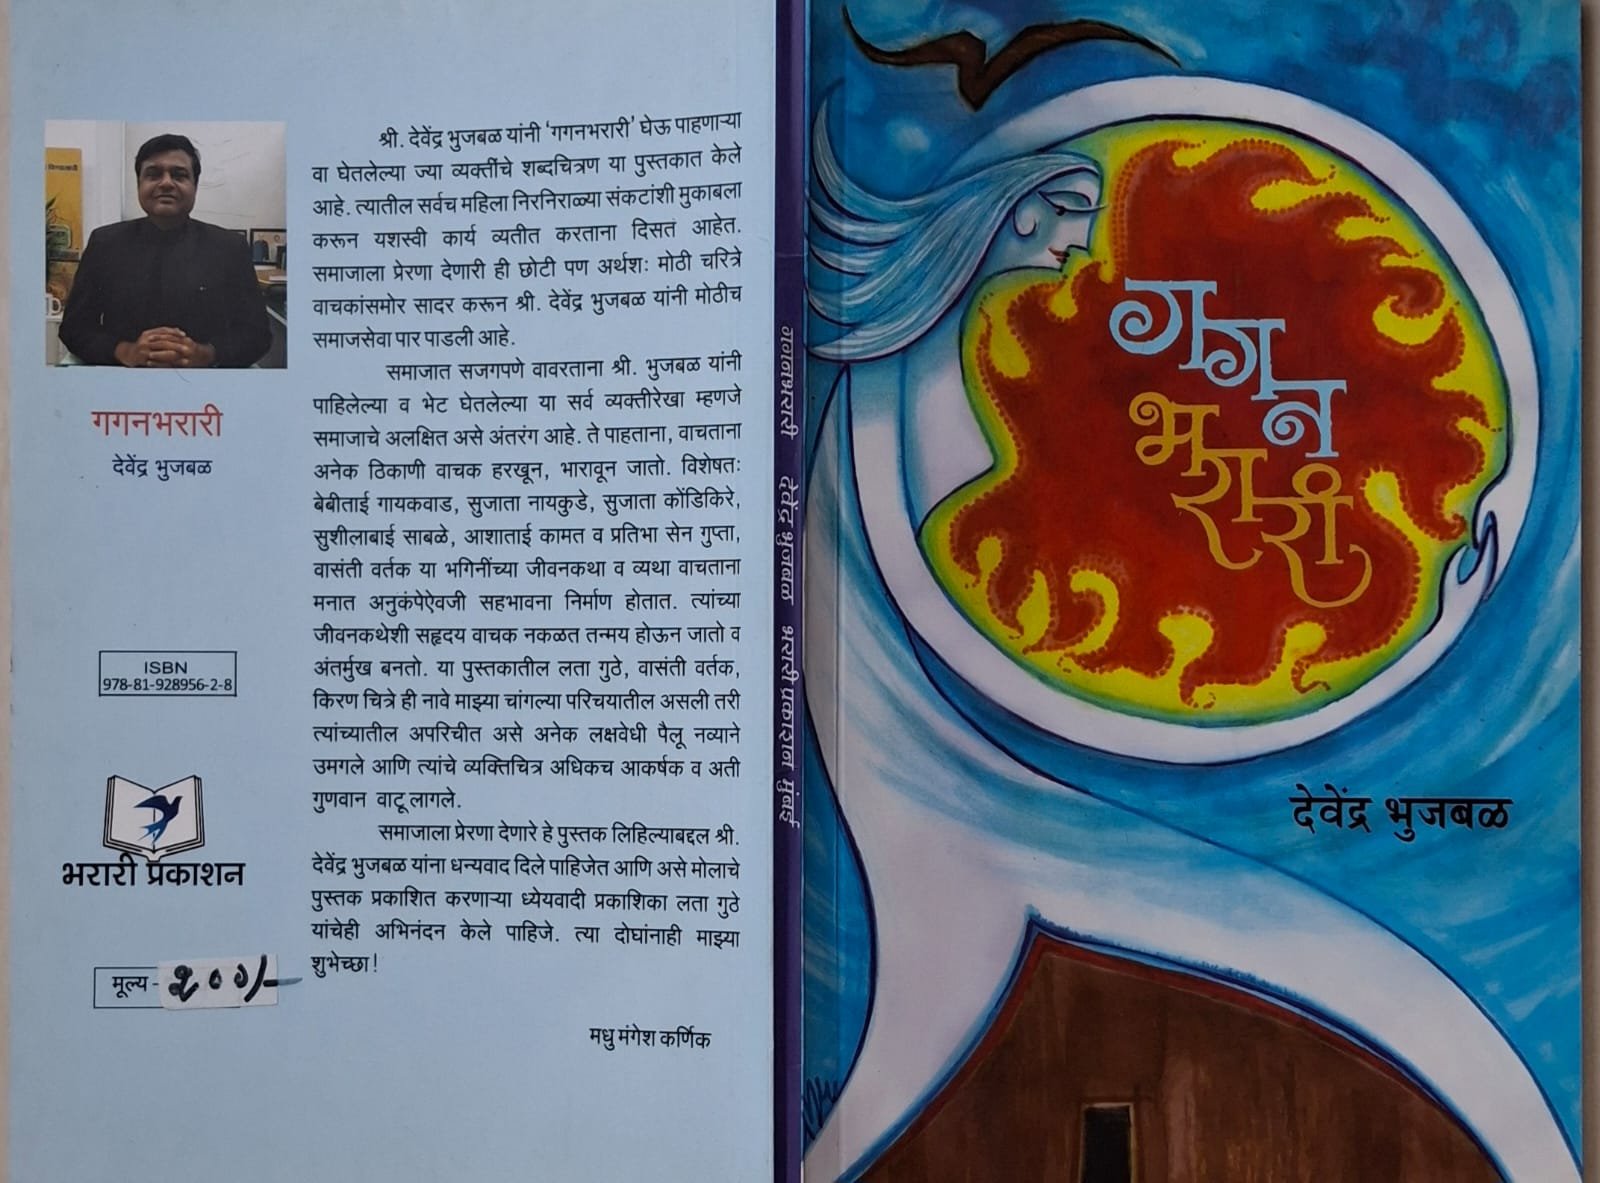 गगनभरारी
देवेंद्र भुजबळ
ISBN
978-81-928956-2-8
भरारी प्रकाशन
मूल्य - २००/-
श्री. देवेंद्र भुजबळ यांनी ‘गगनभरारी’ घेऊ पाहणाऱ्या
वा घेतलेल्या ज्या व्यक्तींचे शब्दचित्रण या पुस्तकात केले
आहे. त्यातील सर्वच महिला निरनिराळ्या संकटांशी मुकाबला
करून यशस्वी कार्य व्यतीत करताना दिसत आहेत.
समाजाला प्रेरणा देणारी ही छोटी पण अर्थशः मोठी चरित्रे
वाचकांसमोर सादर करून श्री. देवेंद्र भुजबळ यांनी मोठीच
समाजसेवा पार पाडली आहे.
समाजात सजगपणे वावरताना श्री. भुजबळ यांनी
पाहिलेल्या व भेट घेतलेल्या या सर्व व्यक्तीरेखा म्हणजे
समाजाचे अलक्षित असे अंतरंग आहे. ते पाहताना, वाचताना
अनेक ठिकाणी वाचक हरखून, भारावून जातो. विशेषतः
बेबीताई गायकवाड, सुजाता नायकुडे, सुजाता कोंडिकिरे,
सुशीलाबाई साबळे, आशाताई कामत व प्रतिभा सेन गुप्ता,
वासंती वर्तक या भगिनींच्या जीवनकथा व व्यथा वाचताना
मनात अनुकंपेऐवजी सहभावना निर्माण होतात. त्यांच्या
जीवनकथेशी सहृदय वाचक नकळत तन्मय होऊन जातो व
अंतर्मुख बनतो. या पुस्तकातील लता गुठे, वासंती वर्तक,
किरण चित्रे ही नावे माझ्या चांगल्या परिचयातील असली तरी
त्यांच्यातील अपरिचीत असे अनेक लक्षवेधी पैलू नव्याने
उमगले आणि त्यांचे व्यक्तिचित्र अधिकच आकर्षक व अती
गुणवान वाटू लागले.
समाजाला प्रेरणा देणारे हे पुस्तक लिहिल्याबद्दल श्री.
देवेंद्र भुजबळ यांना धन्यवाद दिले पाहिजेत आणि असे मोलाचे
पुस्तक प्रकाशित करणाऱ्या ध्येयवादी प्रकाशिका लता गुठे
यांचेही अभिनंदन केले पाहिजे. त्या दोघांनाही माझ्या
शुभेच्छा!
मधु मंगेश कर्णिक
गगनभरारी देवेंद्र भुजबळ भरारी प्रकाशन मुंबई
गगन
भरारी
देवेंद्र भुजबळ